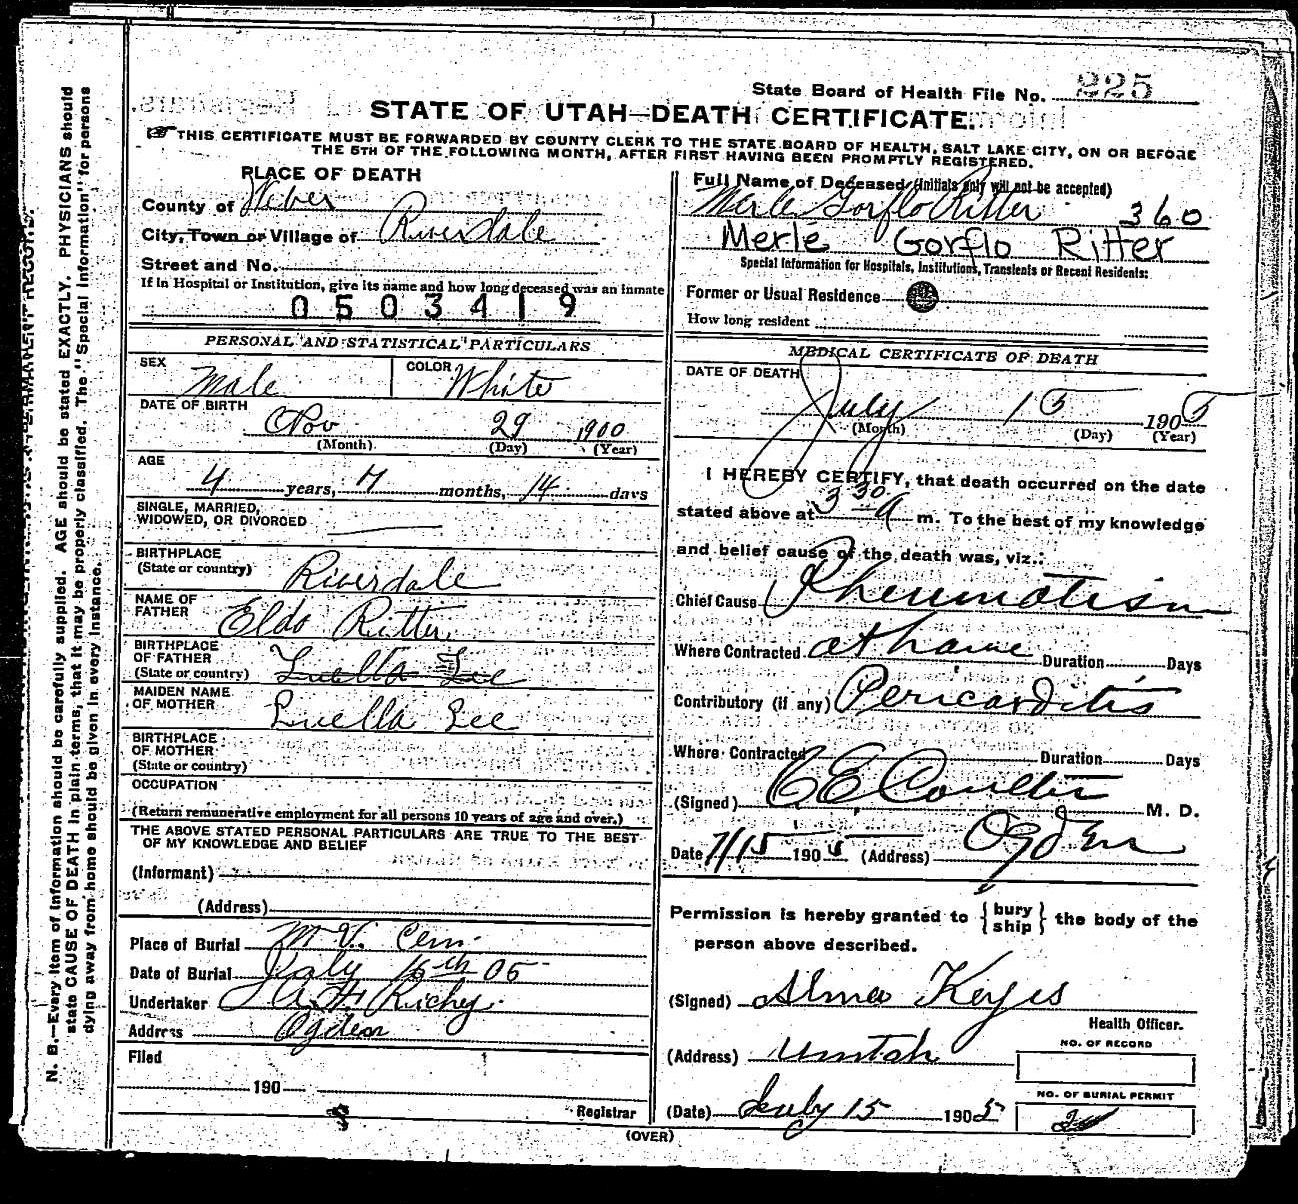 State Board of Health File No. 225
STATE OF UTAH—DEATH CERTIFICATE.
THIS CERTIFICATE MUST BE FORWARDED BY COUNTY CLERK TO THE STATE BOARD OF HEALTH, SALT LAKE CITY, ON OR BEFORE
THE 5TH OF THE FOLLOWING MONTH, AFTER FIRST HAVING BEEN PROMPTLY REGISTERED.
PLACE OF DEATH
County of Weber
City, Town or Village of Riverdale
Street and No.
If in Hospital or Institution, give its name and how long deceased was an inmate
0503419
PERSONAL AND STATISTICAL PARTICULARS
SEX Male COLOR White
DATE OF BIRTH Nov 29 1900
(Month) (Day) (Year)
AGE 4 years, 7 months, 14 days
SINGLE, MARRIED,
WIDOWED, OR DIVORCED
BIRTHPLACE
(State or country) Riverdale
NAME OF
FATHER Eldo Ritter
BIRTHPLACE
OF FATHER
(State or country) Luella Lee
MAIDEN NAME
OF MOTHER Luella Lee
BIRTHPLACE
OF MOTHER
(State or country)
OCCUPATION
(Return remunerative employment for all persons 10 years of age and over.)
THE ABOVE STATED PERSONAL PARTICULARS ARE TRUE TO THE BEST
OF MY KNOWLEDGE AND BELIEF
(Informant)
(Address)
Place of Burial M.V. Cem.
Date of Burial July 16th 05
Undertaker Richey
Address Ogden
Filed
190
Registrar
Full Name of Deceased (Initials only will not be accepted)
Merle Gorflo Ritter 360
Merle Gorflo Ritter
Special Information for Hospitals, Institutions, Transients or Recent Residents:
Former or Usual Residence
How long resident
MEDICAL CERTIFICATE OF DEATH
DATE OF DEATH
July 15 1905
(Month) (Day) (Year)
I HEREBY CERTIFY, that death occurred on the date
stated above at 3 30 a m. To the best of my knowledge
and belief cause of the death was, viz.:
Chief Cause Rheumatism
Where Contracted at home Duration Days
Contributory (if any) Pericarditis
Where Contracted Duration Days
(Signed) C E Coulter M. D.
Date 7/15 1905 (Address) Ogden
Permission is hereby granted to {bury
ship} the body of the
person above described.
(Signed) Alma Keyes
Health Officer.
(Address) Uintah
NO. OF RECORD
NO. OF BURIAL PERMIT
(Date) July 15 1905
(OVER)
N. B.—Every item of information should be carefully supplied. AGE should be stated EXACTLY. PHYSICIANS should
state CAUSE OF DEATH in plain terms, that it may be properly classified. The "Special Information" for persons
dying away from home should be given in every instance.